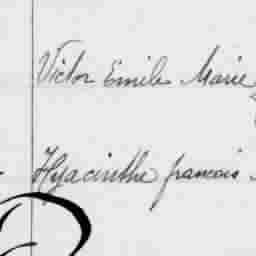 Victor Emile Marie
Hyacinthe francois